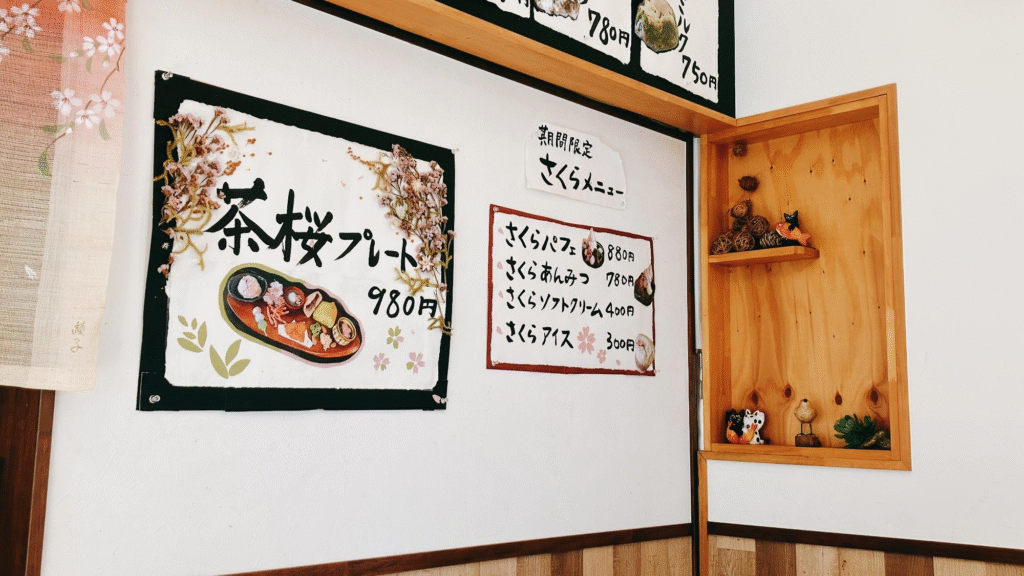 780円
ミルク
750円
茶桜プレート
980円
期間限定
さくらメニュー
さくらパフェ 880円
さくらあんみつ 780円
さくらソフトクリーム 400円
さくらアイス 300円